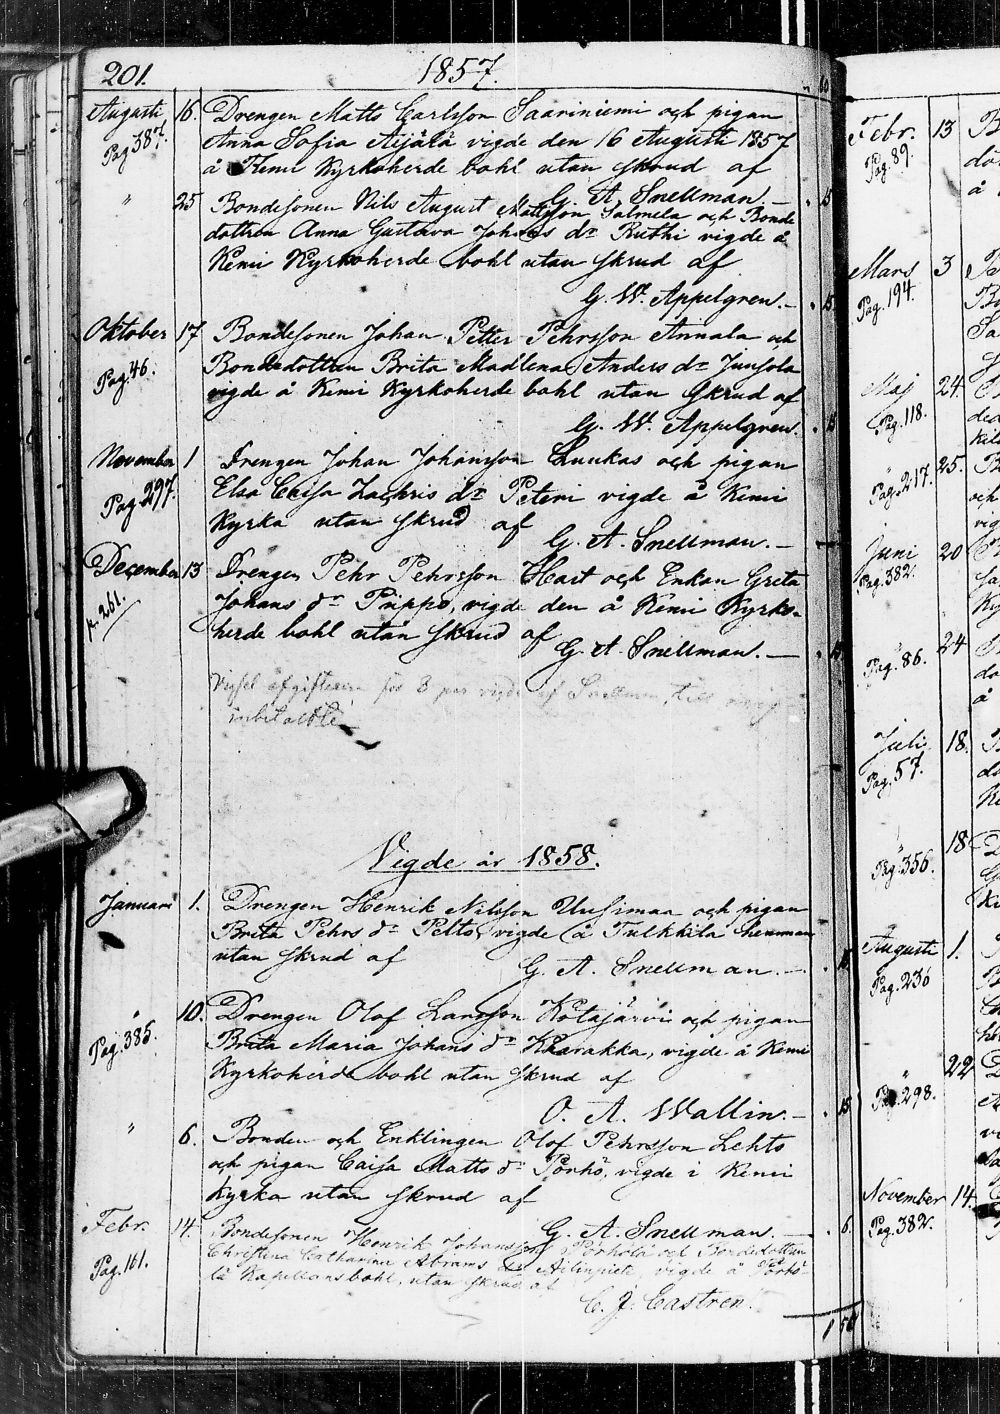 201.
1857.
Augusti 16. Drengen Matts Carlsson Saariniemi och pigan
Pag 387. Anna Sofia Aijälä vigde den 16 Augusti 1857
å Kemi Kyrkoherde bohl utan skrud af
G. A. Snellman.
" 25 Bondesonen Nils August Mattsson Salmela och Bonde
dottren Anna Gustava Johans dr Ruthi vigde å
Kemi Kyrkoherde bohl utan skrud af
G. W. Appelgren. 15
Oktober 17 Bondesonen Johan Petter Pehrsson Annala och
Pag. 46. Bondedottren Brita Madlena Anders dr Junsola
vigde å Kemi Kyrkoherde bohl utan skrud af
G. W. Appelgren. 15
November 1 Drengen Johan Johansson Luukas och pigan
Pag 297. Elsa Caisa Zachris dr Peteri vigde å Kemi
Kyrka utan skrud af
G. A. Snellman.
December 13 Drengen Pehr Pehrsson Hast och Enkan Greta
p. 261. Johans dr Prippo, vigde den å Kemi Kyrko-
herde bohl utan skrud af
G. A. Snellman. 15
för 8 par vigde af Snellman,
Vigde år 1858.
Januari 1. Drengen Henrik Nilsson Uusimaa och pigan
Brita Pehrs dr Pelto, vigde å Tulkkila hemman
utan skrud af
G. A. Snellman. 15
" 10. Drengen Olof Larsson Kötajärvi och pigan
Pag. 385. Brita Maria Johans dr Kharakka, vigde å Kemi
Kyrkoherde bohl utan skrud af
O. A. Wallin. 15
" 6. Bonden och Enklingen Olof Pehrsson Lehto
och pigan Caisa Matts dr Pörhö, vigde i Kemi
Kyrka utan skrud af
G. A. Snellman. 6.
Febr. 14. Bondesonen Henrik Johansson Pörhölä och Bondedottren
Pag. 161. Christina Catharina Abrams dr Ailinpieti, vigde å
Kapellansbohl, utan skrud af
C. J. Castren.
Febr. 13
Pag. 89.
Mars 3
Pag. 194.
Maj 24.
Pag. 118.
" 25.
Pag. 217.
Juni 20
Pag. 382.
" 24
Pag. 86.
Juli 18.
Pag. 57.
" 18
Pag. 356.
Augusti 1.
Pag. 236
" 22
Pag. 298.
November 14.
Pag. 382.